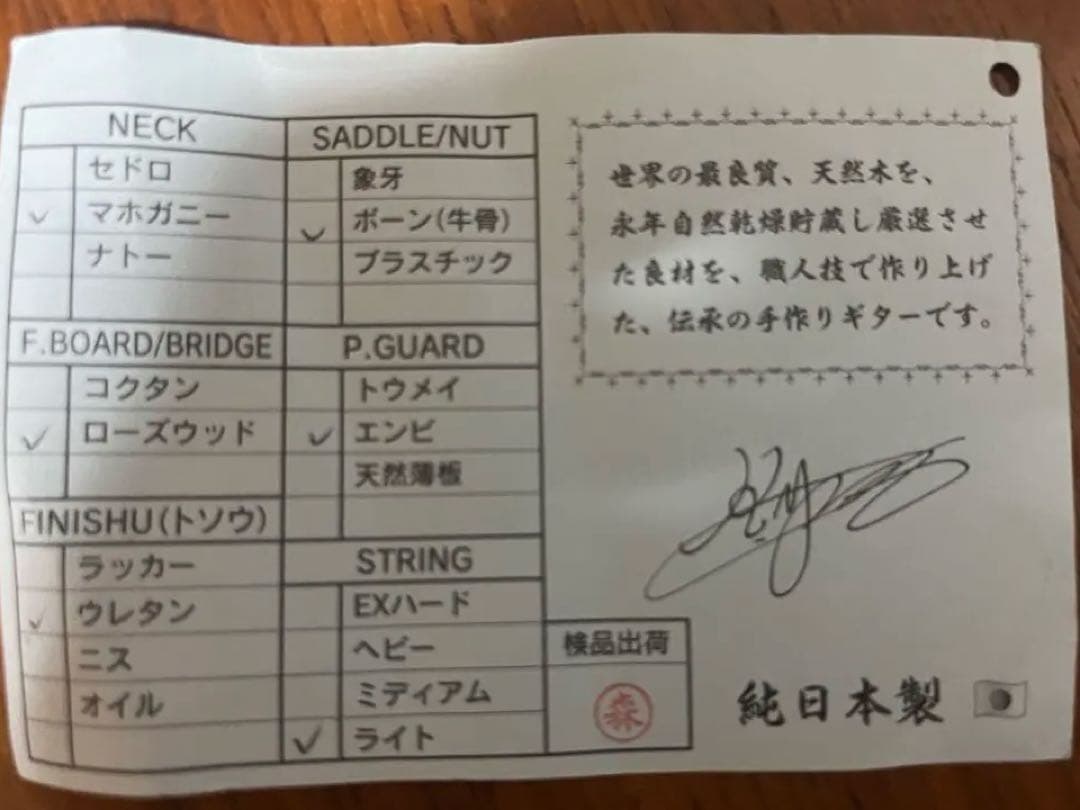 NECK
セドロ
✓ マホガニー
ナトー
F.BOARD/BRIDGE
コクタン
✓ ローズウッド
FINISHU(トソウ)
ラッカー
✓ ウレタン
ニス
オイル
SADDLE/NUT
象牙
✓ ボーン(牛骨)
プラスチック
P.GUARD
トウメイ
✓ エンビ
天然薄板
STRING
EXハード
ヘビー
ミディアム
✓ ライト
検品出荷
森
世界の最良質、天然木を、
永年自然乾燥貯蔵し厳選させ
た良材を、職人技で作り上げ
た、伝承の手作りギターです。
純日本製